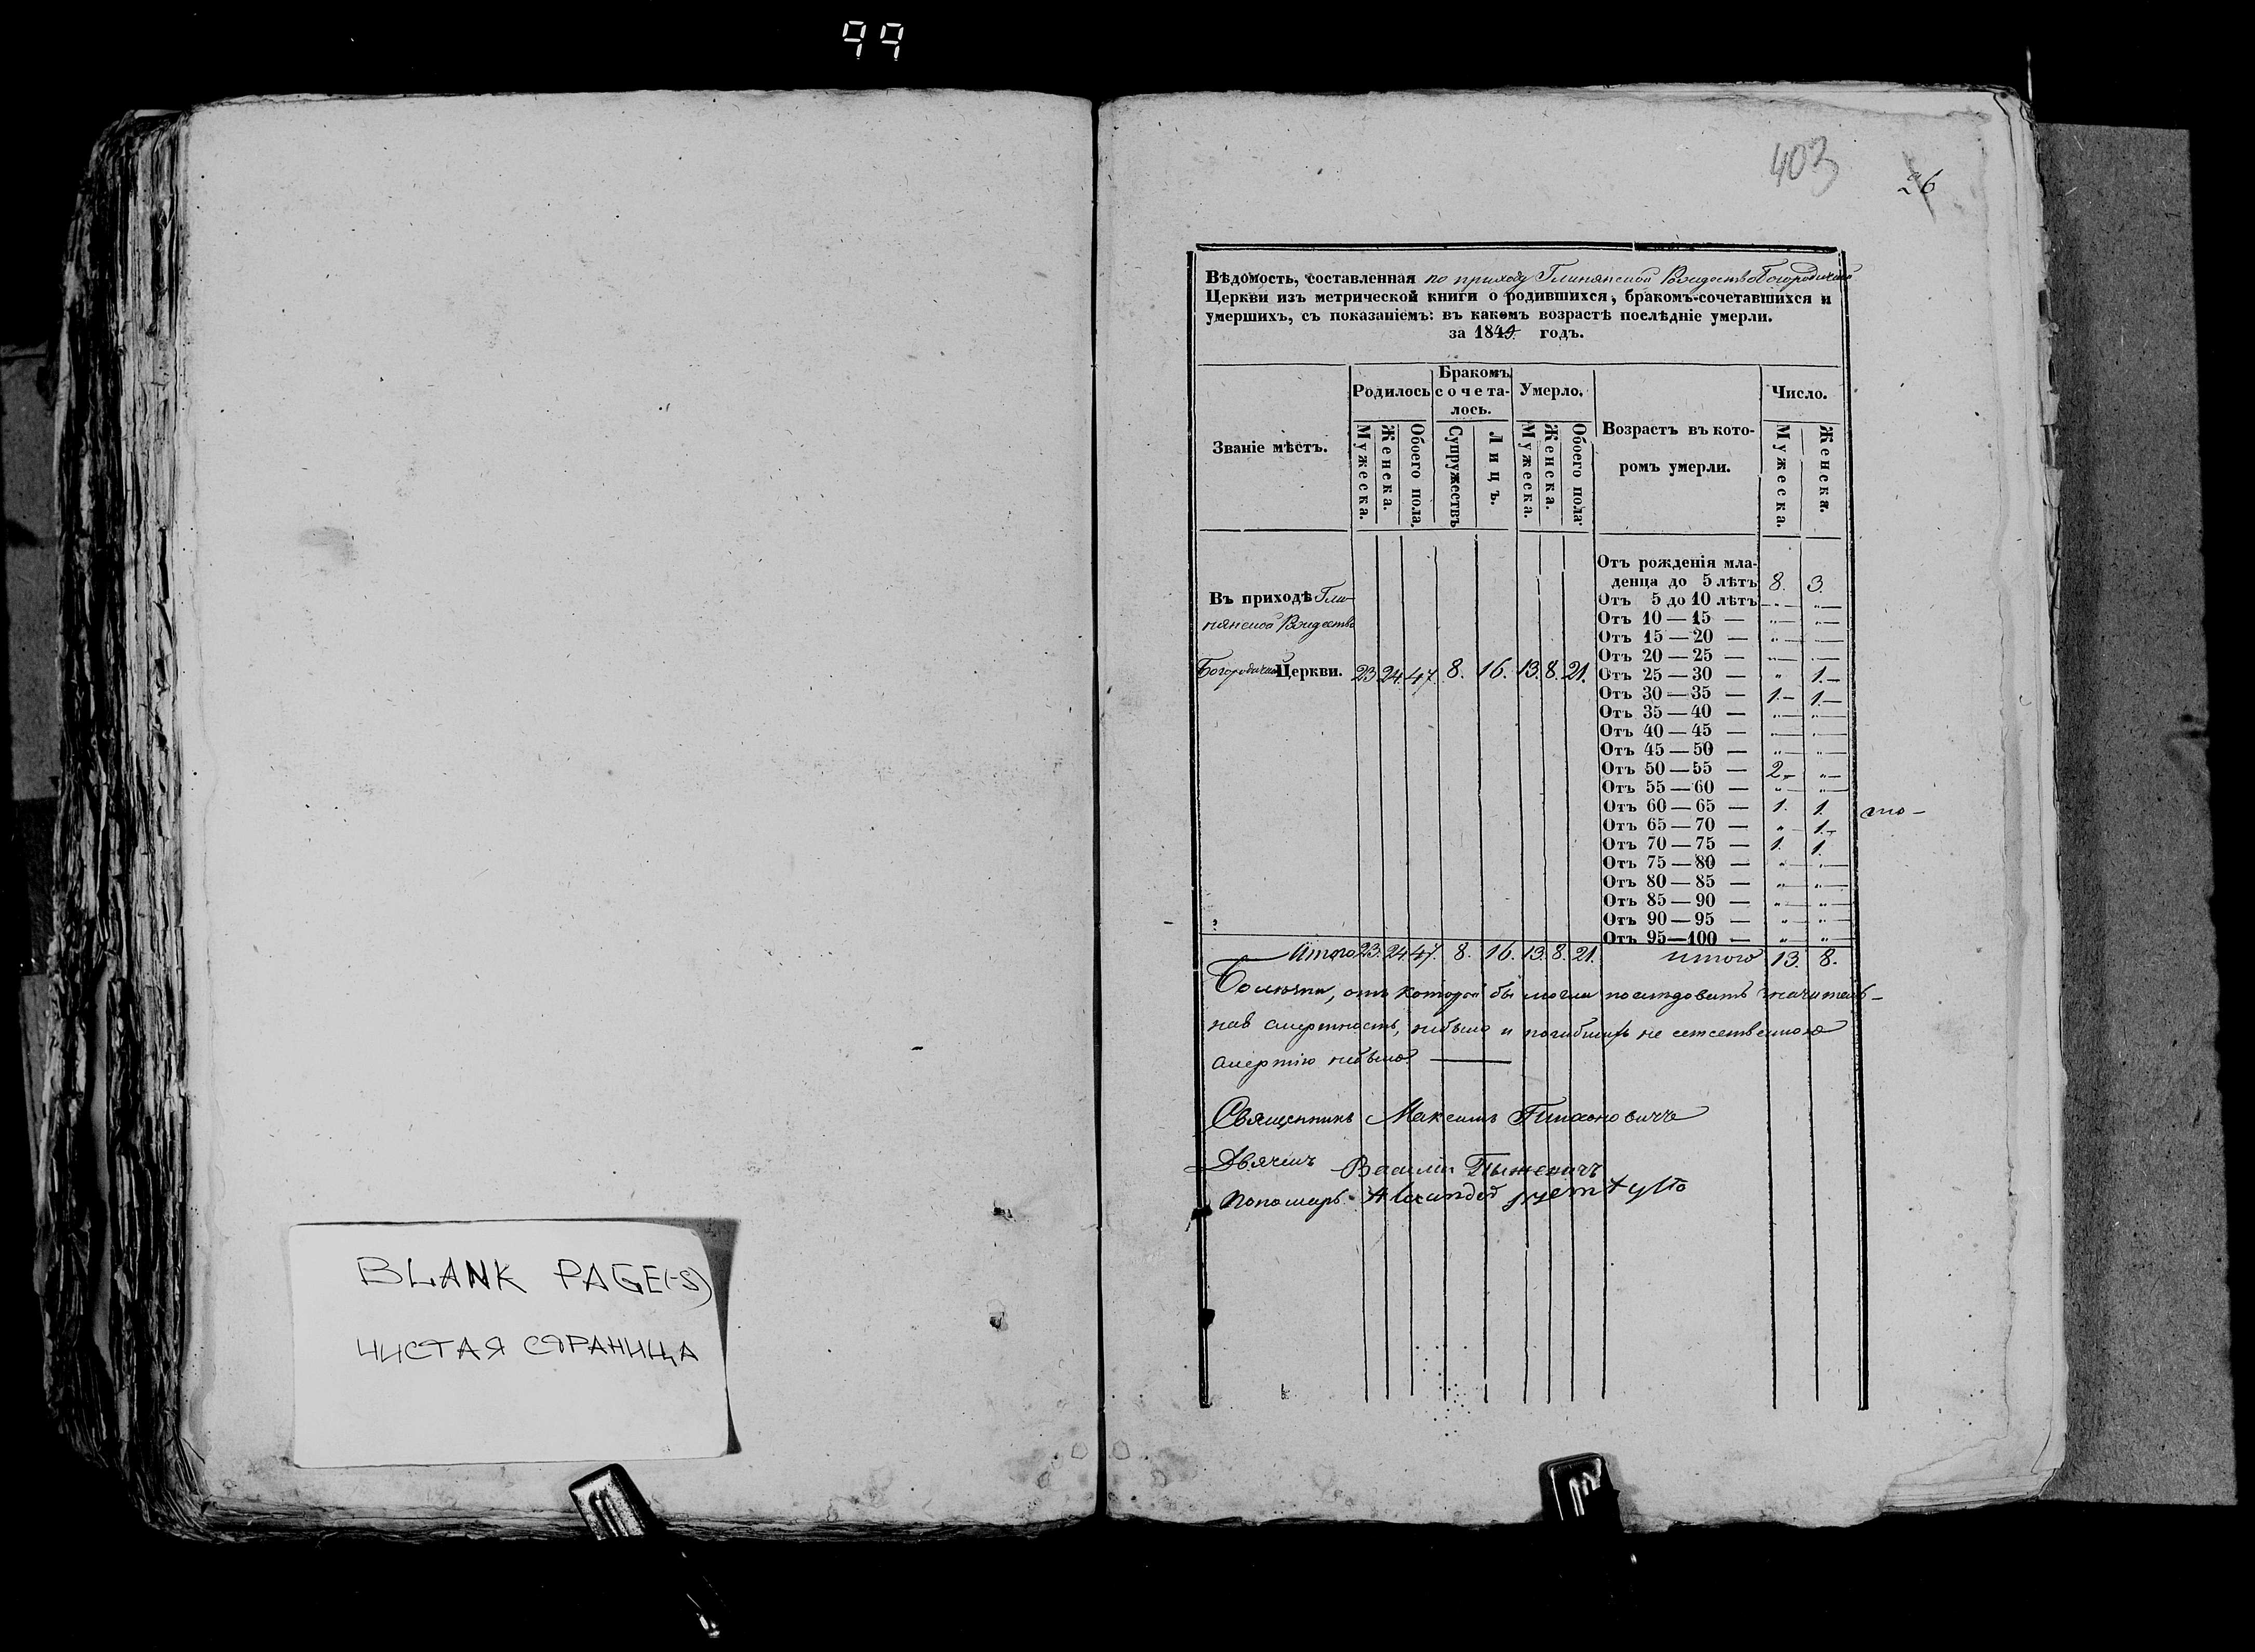 99
403
26
Вѣдомость, составленная по приходу Глинянской Рождество Богородичной
Церкви изъ метрической книги о родившихся, бракомъ-сочетавшихся и
умершихъ, съ показаніемъ: въ какомъ возрастѣ послѣдніе умерли.
за 1849. годъ.
Званіе мѣстъ.
Родилось
Бракомъ
сочета-
лось.
Умерло.
Возрастъ въ кото-
ромъ умерли.
Число.
Мужеска.
Женска.
Обоего пола
Супружествъ
Лицъ.
Мужеска.
Женска.
Обоего пола
Мужеска.
Женска.
Въ приходѣ Гли-
нянской Рождество
Богородичной Церкви. 23. 24. 47. 8. 16. 13. 8. 21.
Отъ рожденія мла-
денца до 5 лѣтъ 8. 3.
Отъ 5 до 10 лѣтъ „— „—
Отъ 10 — 15 — „— „—
Отъ 15 — 20 — „— „—
Отъ 20 — 25 — „— „—
Отъ 25 — 30 — „ 1.—
Отъ 30 — 35 — 1.— 1.—
Отъ 35 — 40 — „— „—
Отъ 40 — 45 — „— „—
Отъ 45 — 50 — „— „—
Отъ 50 — 55 — 2.— „—
Отъ 55 — 60 — „— „—
Отъ 60 — 65 — 1. 1.
Отъ 65 — 70 — „ 1.—
Отъ 70 — 75 — 1. 1.
Отъ 75 — 80 — „— „—
Отъ 80 — 85 — „— „—
Отъ 85 — 90 — „— „—
Отъ 90 — 95 — „— „—
Отъ 95—100 — „— „—
то-
Итого 23. 24. 47. 8. 16. 13. 8. 21. итого 13. 8.
Болѣзни, отъ которой бы могла послѣдовать значитель-
ная смертность, небыло и погибшихъ не естественною
смертію небыло. —
Священникъ Максимъ Тихоновичъ
Дьячекъ Василій
Пономарь
BLANK PAGE(-S)
ЧИСТАЯ СТРАНИЦА